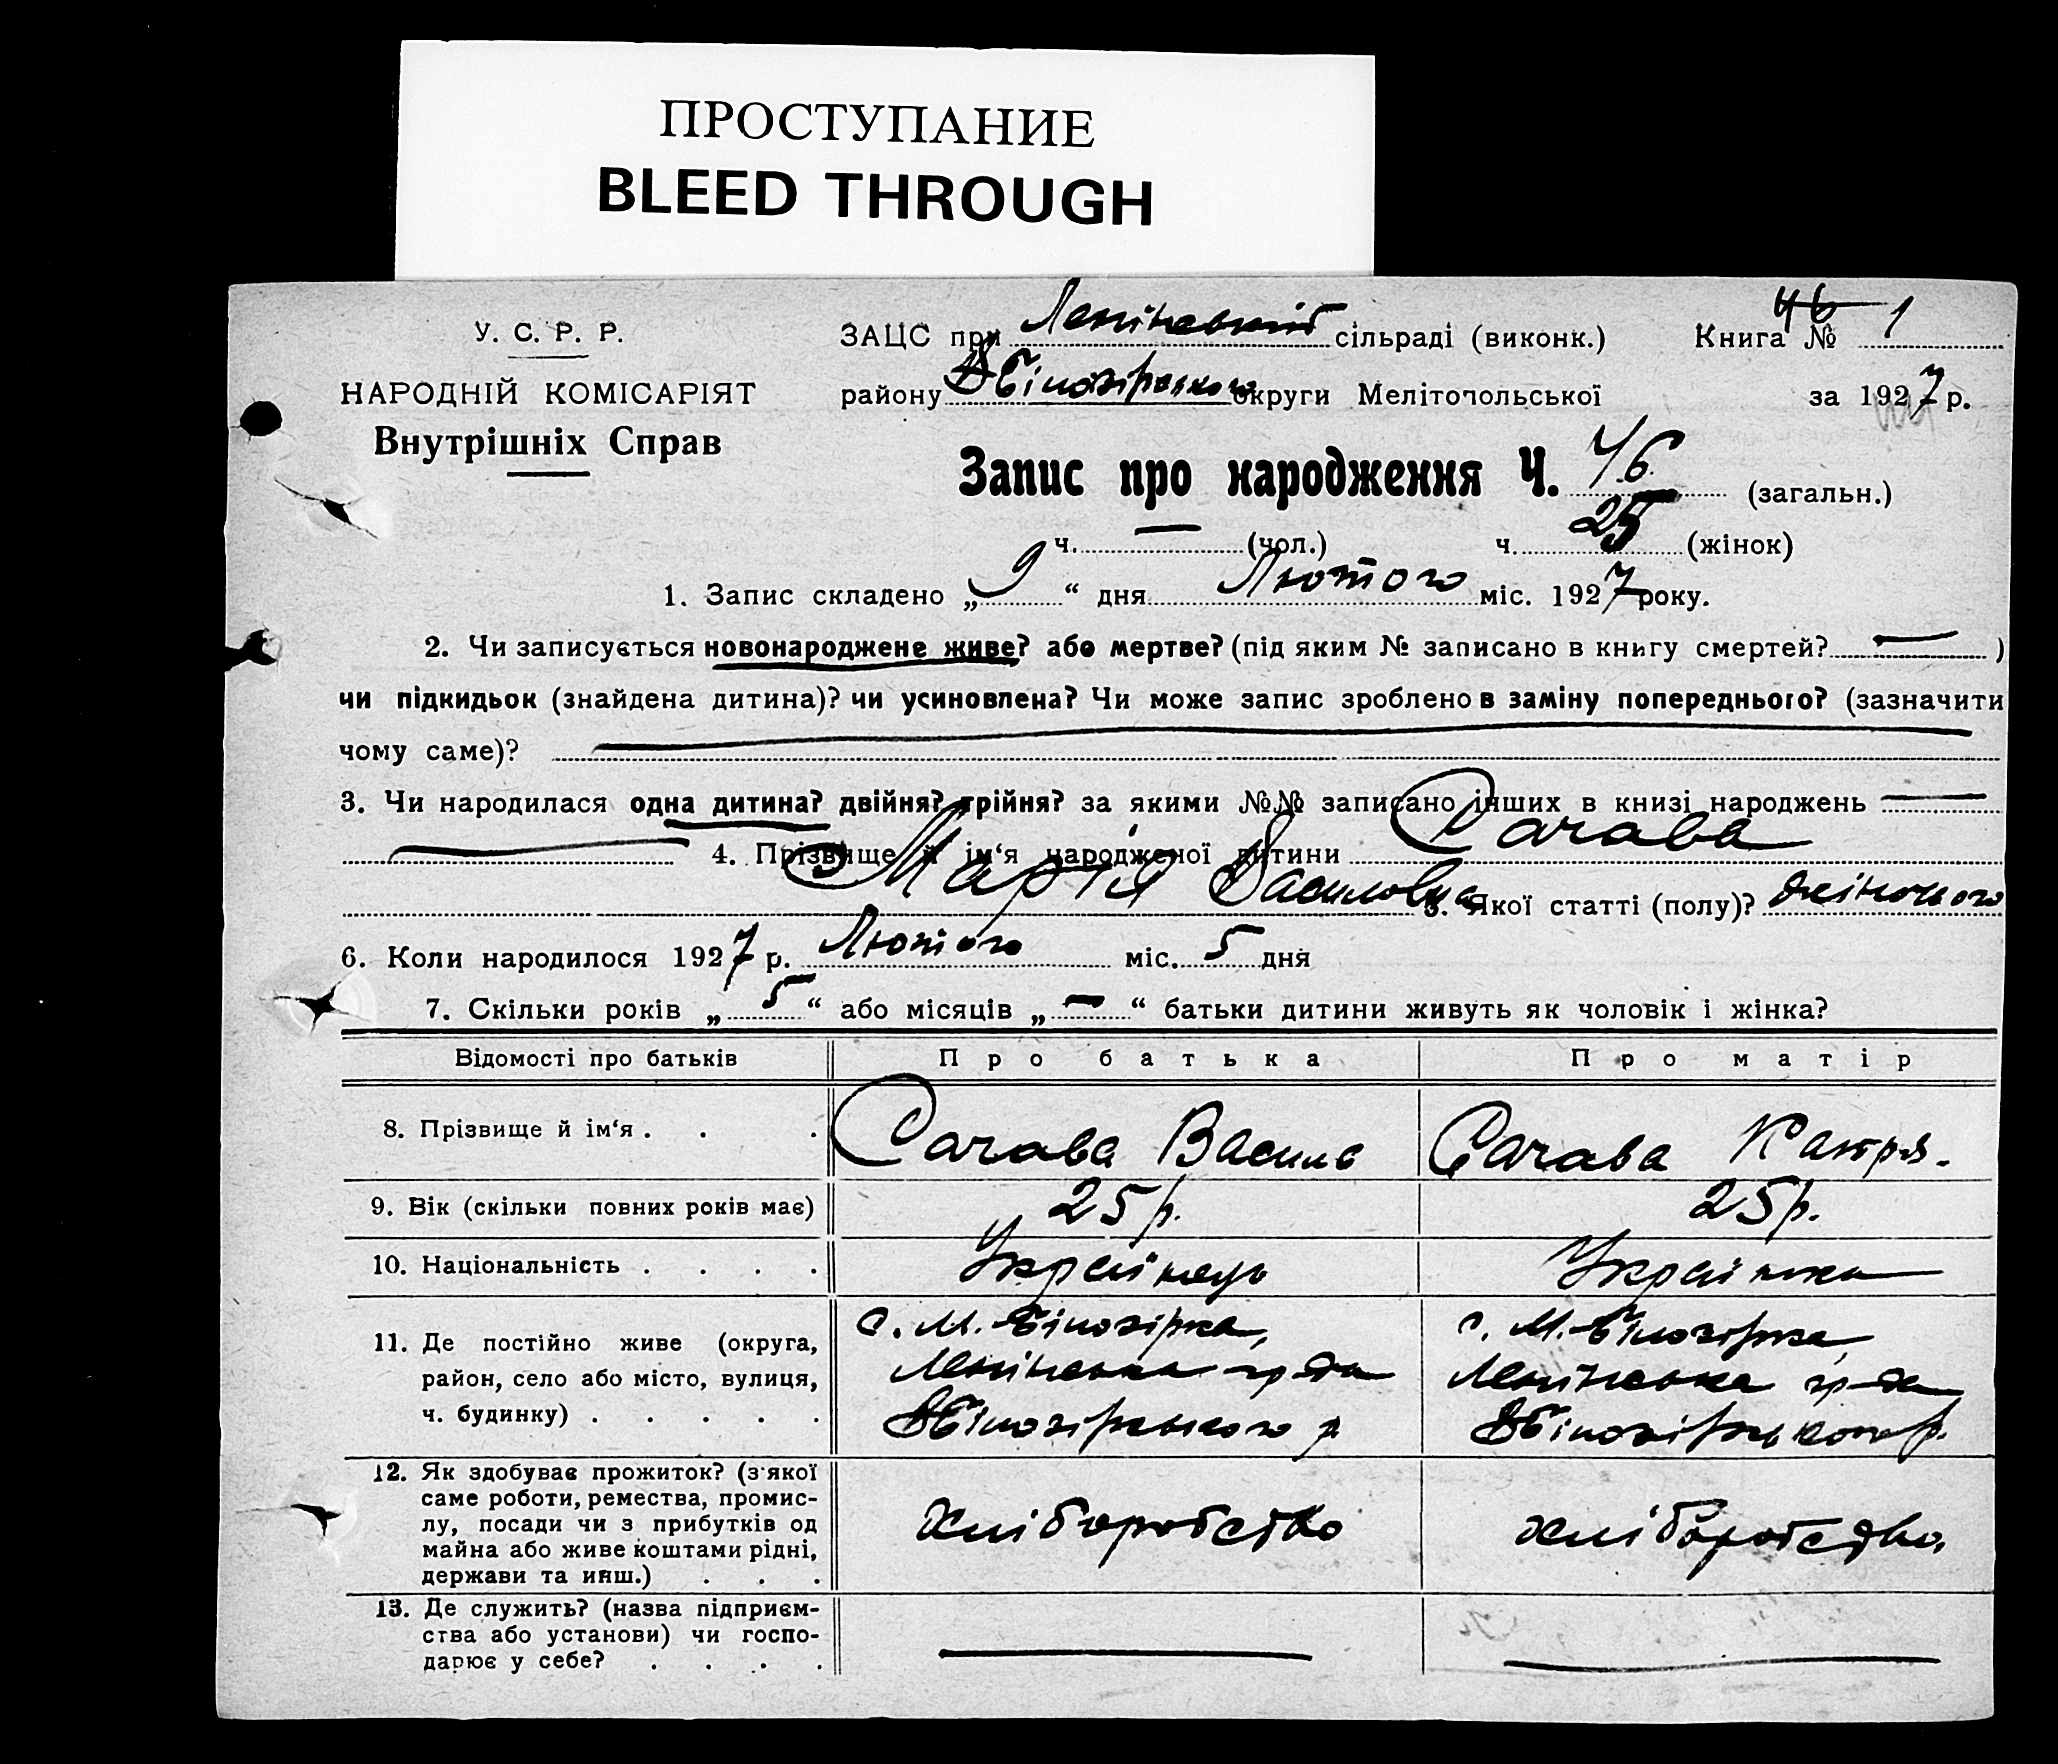 ПРОСТУПАНИЕ
BLEED THROUGH
У. С. Р. Р.
НАРОДНІЙ КОМІСАРІЯТ
Внутрішніх Справ
ЗАЦС при Ленінській сільраді (виконк.) Книга № 46 1
району ВБілозірського округи Мелітопольської за 1927 р.
Запис про народження Ч. 46 (загальн.)
ч. — (чол.) ч. 25 (жінок)
1. Запис складено „9“ дня Лютого міс. 1927 року.
2. Чи записується новонароджене живе? або мертве? (під яким № записано в книгу смертей? — )
чи підкидьок (знайдена дитина)? чи усиновлена? Чи може запис зроблено в заміну попереднього? (зазначити
чому саме)?
3. Чи народилася одна дитина? двійня? трійня? за якими №№ записано інших в книзі народжень —
— 4. Прізвище й ім‘я народженої дитини Сачава
Марія Василовна 5. Якої статті (полу)? жіночого
6. Коли народилося 1927 р. Лютого міс. 5 дня
7. Скільки років „5“ або місяців „—“ батьки дитини живуть як чоловік і жінка?
Відомості про батьків Про батька Про матір
8. Прізвище й ім‘я . . . Сачава Василь Сачава Катря.
9. Вік (скільки повних років має) 25 р. 25 р.
10. Національність . . . . Українець Українка
11. Де постійно живе (округа, с. М. Білозірка, с. М. Білозірка,
район, село або місто, вулиця, Ленінська гр-да Ленінська гр-да
ч. будинку) . . . . . ВБілозірського р. ВБілозірського р.
12. Як здобуває прожиток? (з'якої
саме роботи, ремества, промис-
лу, посади чи з прибутків од хліборобство хліборобство.
майна або живе коштами рідні,
держави та инш.) . . .
13. Де служить? (назва підприєм-
ства або установи) чи госпо-
дарює у себе? . . . . — —